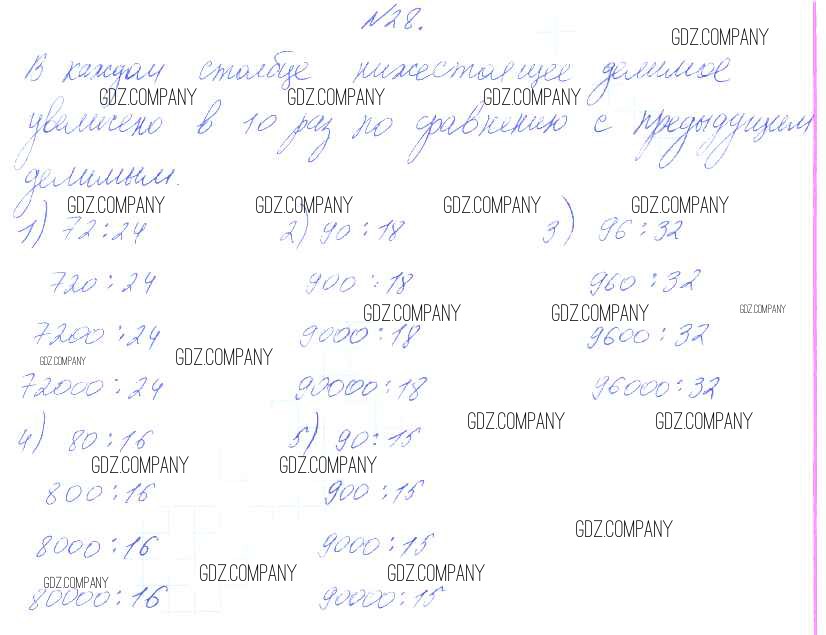 №28.
GDZ.COMPANY
В каждом столбце нижестоящее делимое
GDZ.COMPANY GDZ.COMPANY GDZ.COMPANY
увеличено в 10 раз по сравнению с предыдущим
делимым.
GDZ.COMPANY GDZ.COMPANY GDZ.COMPANY GDZ.COMPANY
1) 72:24 2) 90:18 3) 96:32
720:24 900:18 960:32
GDZ.COMPANY GDZ.COMPANY GDZ.COMPANY
7200:24 9000:18 9600:32
GDZ.COMPANY GDZ.COMPANY
72000:24 90000:18 96000:32
GDZ.COMPANY GDZ.COMPANY
4) 80:16 5) 90:15
GDZ.COMPANY GDZ.COMPANY
800:16 900:15
GDZ.COMPANY
8000:16 9000:15
GDZ.COMPANY GDZ.COMPANY GDZ.COMPANY
80000:16 90000:15